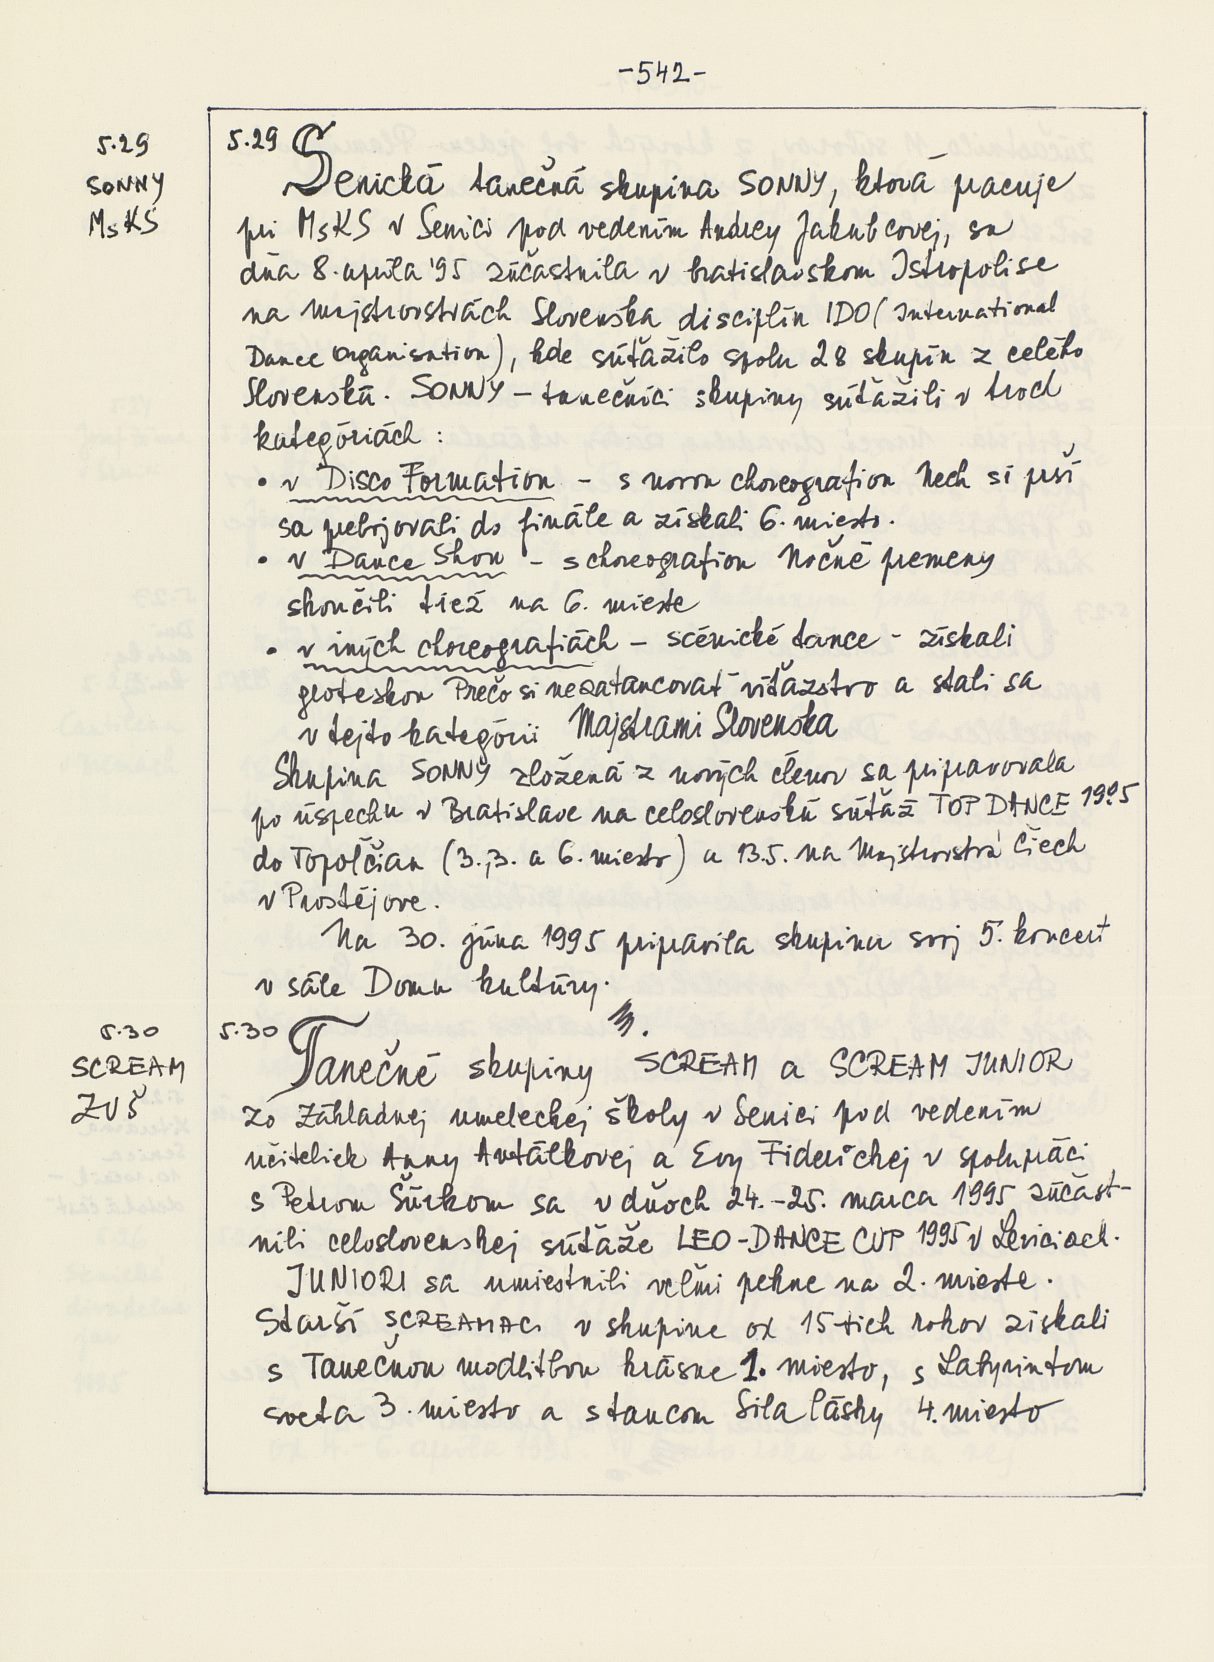 -542-
5.29
SONNY
MsKS
5.29 Senická tanečná skupina SONNY, ktorá pracuje
pri MsKS v Senici pod vedením Andrey Jakubcovej, sa
dňa 8. apríla '95 zúčastnila v bratislavskom Istropolise
na Majstrovstvách Slovenska disciplín IDO (International
Dance Organisation), kde súťažilo spolu 28 skupín z celého
Slovenská. SONNY - tanečníci skupiny súťažili v troch
kategóriách :
• v Disco Formation - s novou choreografiou Nech si prší
sa prebojovali do finále a získali 6. miesto.
• v Dance Show - s choreografiou Nočné premeny
skončili tiež na 6. mieste
• v iných choreografiách - scénické tance - získali
groteskou Prečo si nezatancovať víťazstvo a stali sa
v tejto kategórii Majstrami Slovenska
Skupina SONNY zložená z nových členov sa pripravovala
po úspechu v Bratislave na celoslovenskú súťaž TOP DANCE 1995
do Topolčian (3., 3. a 6. miesto) a 13.5. na Majstrovstvá Čiech
v Prostějove.
Na 30. júna 1995 pripravila skupina svoj 5. koncert
v sále Domu kultúry.
5.30
SCREAM
ZUŠ
5.30 Tanečné skupiny SCREAM a SCREAM JUNIOR
zo Základnej umeleckej školy v Senici pod vedením
učiteliek Anny Antálkovej a Evy Fideríckej v spolupráci
s Petrom Šúrkom sa v dňoch 24.-25. marca 1995 zúčast-
nili celoslovenskej súťaže LEO-DANCE CUP 1995 v Leviciach.
JUNIORI sa umiestnili veľmi pekne na 2. mieste.
Starší SCREAMACI v skupine od 15-tich rokov získali
s Tanečnou modlitbou krásne 1. miesto, s Labyrintom
sveta 3. miesto a s tancom Sila lásky 4. miesto